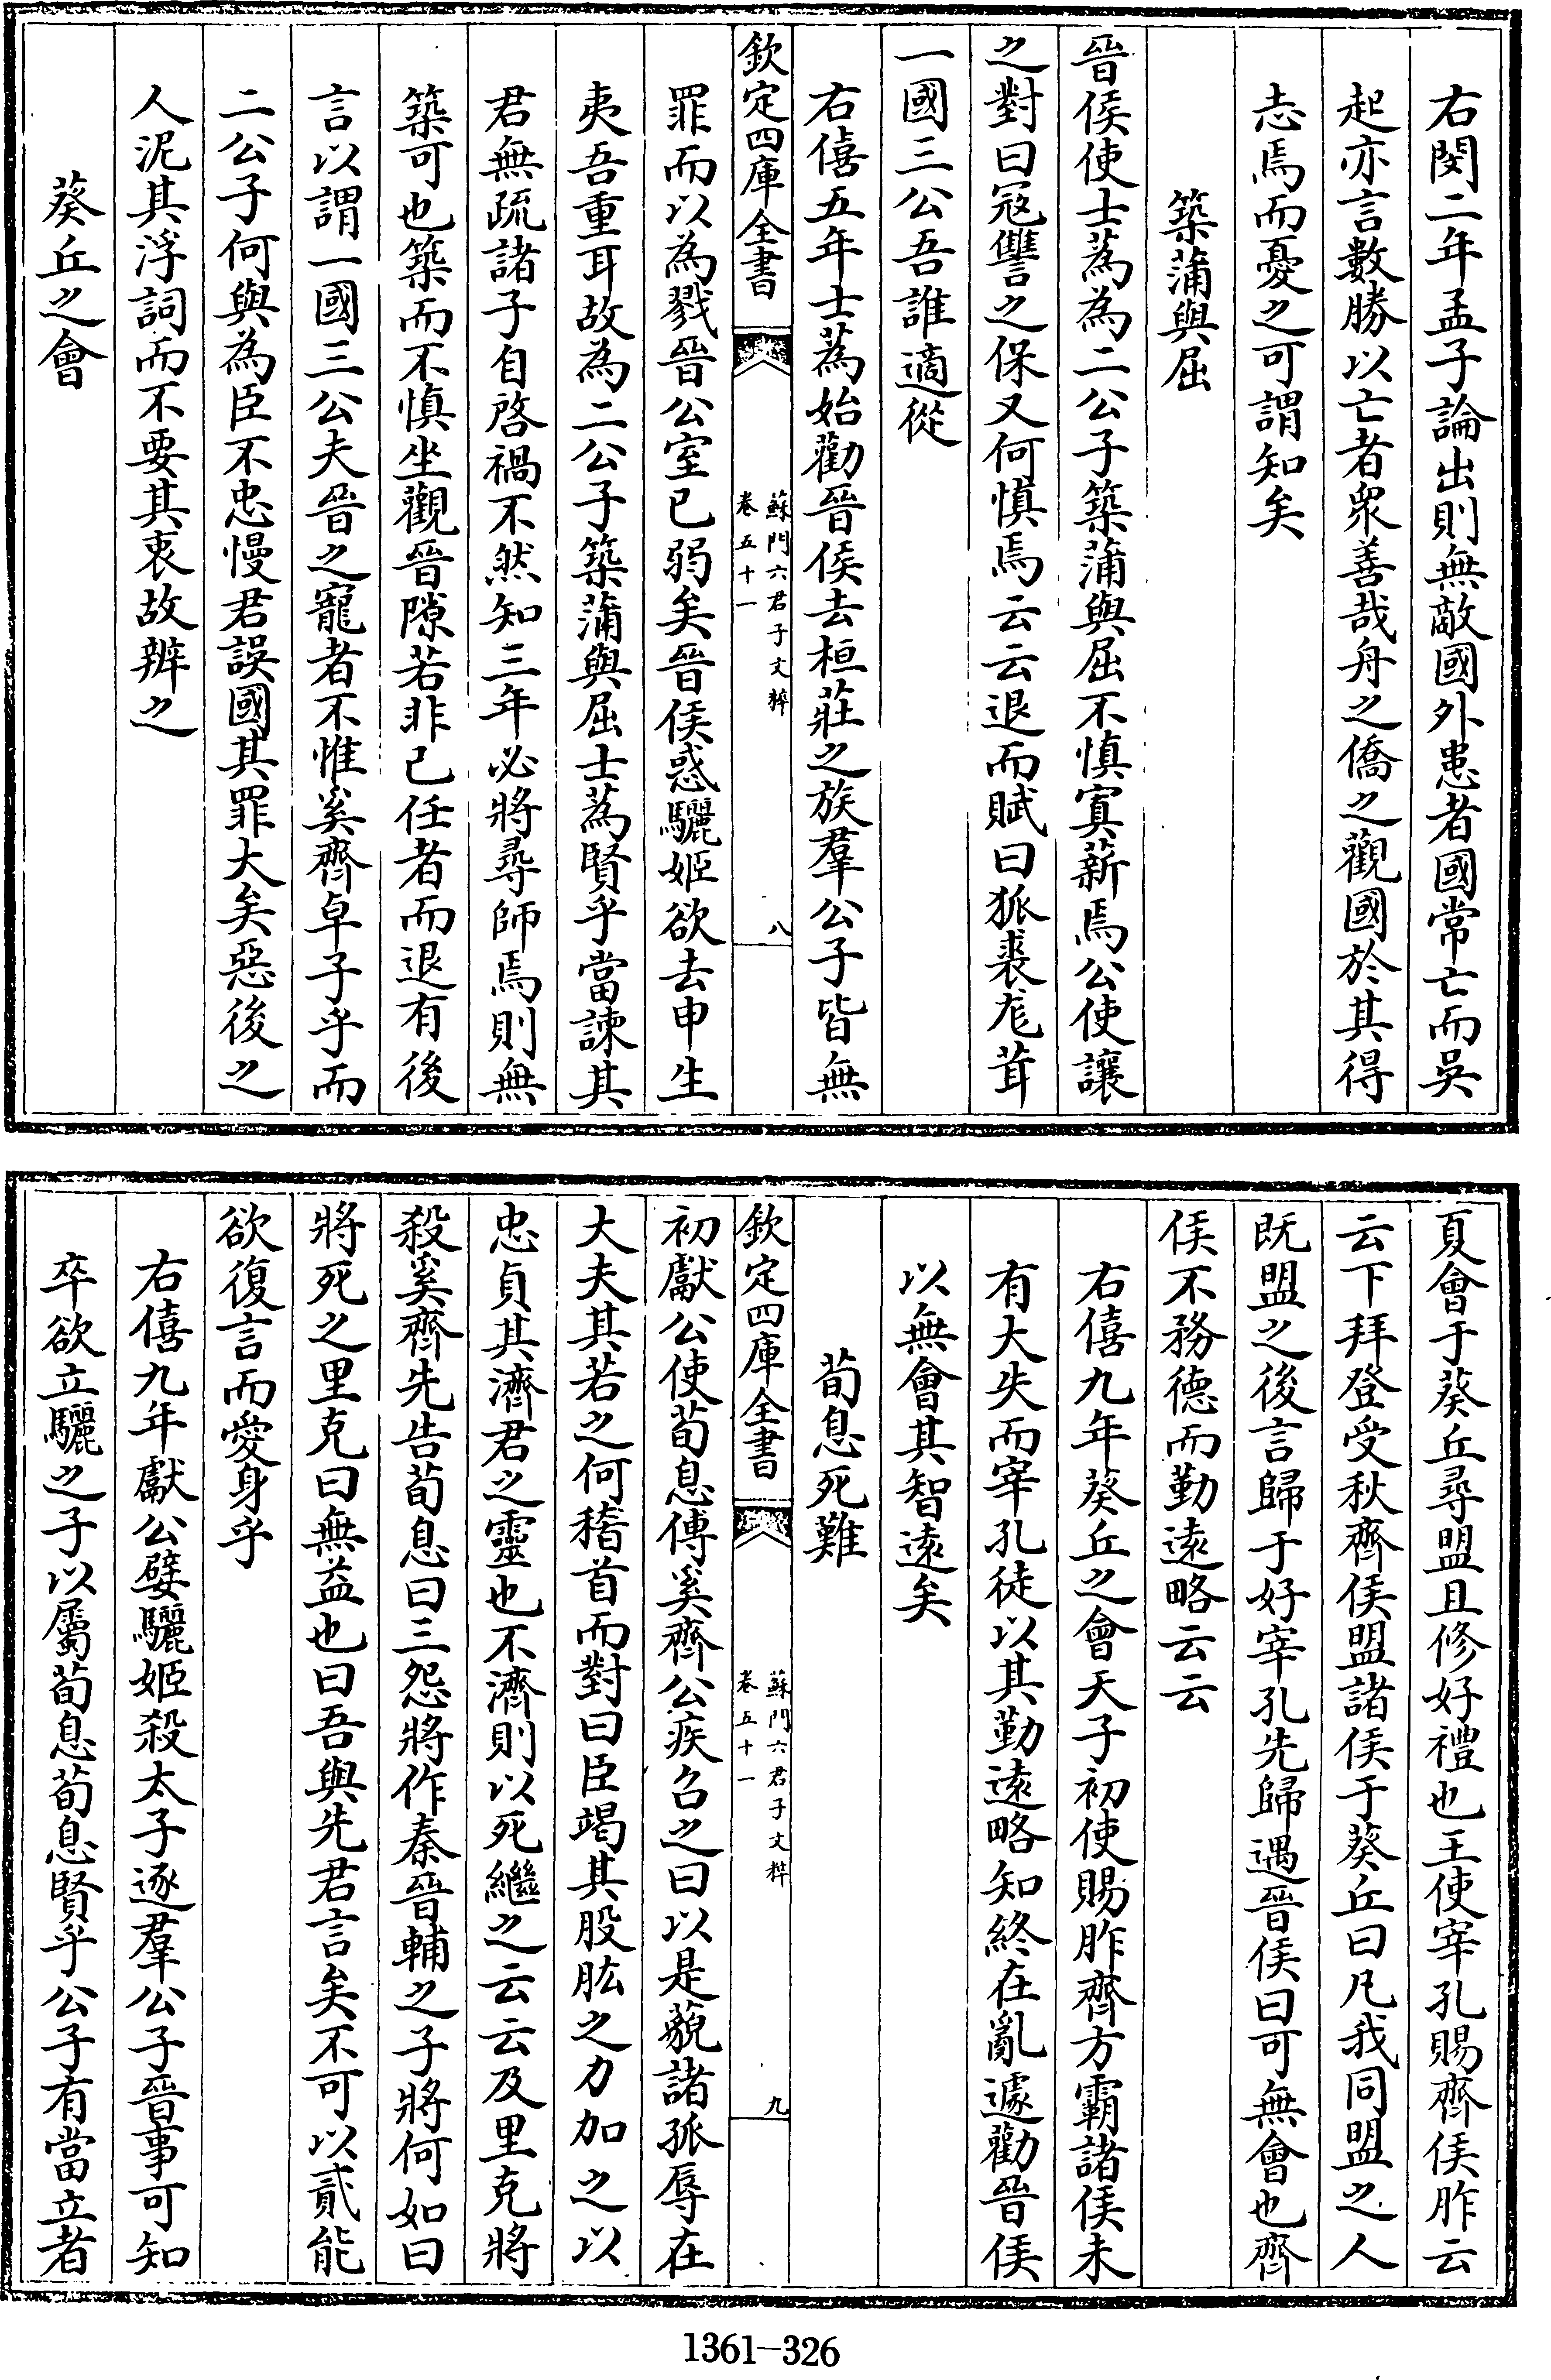 右閔二年孟子論出則無敵國外患者國常亡而吳
起亦言數勝以亡者衆善哉舟之僑之觀國於其得
志焉而憂之可謂知矣
築蒲與屈
晉侯使士蒍為二公子築蒲與屈不慎寘薪焉公使讓
之對曰冦讐之保又何慎焉云云退而賦曰狐裘尨茸
一國三公吾誰適從
右僖五年士蒍始勸晉侯去桓莊之族羣公子皆無
欽定四庫全書
蘇門六君子文粹
卷五十一
八
罪而以為戮晉公室已弱矣晉侯惑驪姬欲去申生
夷吾重耳故為二公子築蒲與屈士蒍賢乎當諫其
君無疏諸子自啓禍不然知三年必將尋師焉則無
築可也築而不慎坐觀晉隙若非已任者而退有後
言以謂一國三公夫晉之寵者不惟奚齊卓子乎而
二公子何與為臣不忠慢君誤國其罪大矣惡後之
人泥其浮詞而不要其衷故辨之
葵丘之會
夏會于葵丘尋盟且修好禮也王使宰孔賜齊侯胙云
云下拜登受秋齊侯盟諸侯于葵丘曰凡我同盟之人
既盟之後言歸于好宰孔先歸遇晉侯曰可無會也齊
侯不務德而勤逺略云云
右僖九年葵丘之會天子初使賜胙齊方霸諸侯未
有大失而宰孔徒以其勤逺略知終在亂遽勸晉侯
以無會其智逺矣
荀息死難
初獻公使荀息傅奚齊公疾召之曰以是藐諸孤辱在
欽定四庫全書
蘇門六君子文粹
卷五十一
九
大夫其若之何稽首而對曰臣竭其股肱之力加之以
忠貞其濟君之靈也不濟則以死繼之云云及里克將
殺奚齊先告荀息曰三怨將作秦晉輔之子將何如曰
將死之里克曰無益也曰吾與先君言矣不可以貳能
欲復言而愛身乎
右僖九年獻公嬖驪姬殺太子逐羣公子晉事可知
卒欲立驪之子以屬荀息荀息賢乎公子有當立者
1361-326